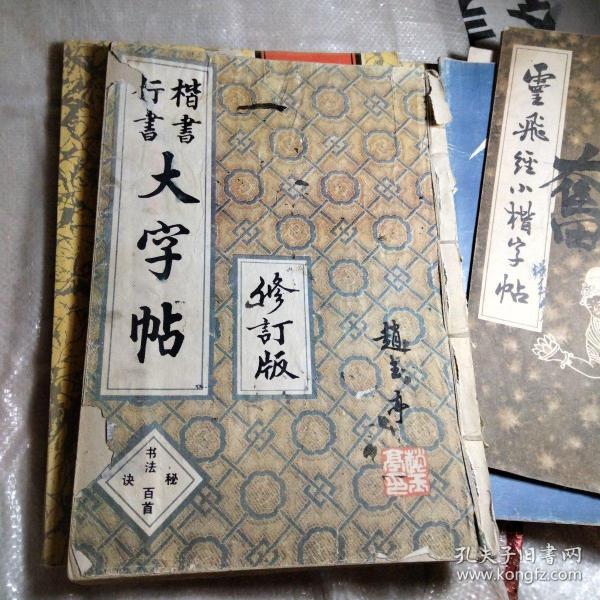 楷書
行書
大字帖
修訂版
趙玉亭
书法
秘诀
百首
靈飛經小楷字帖
奮
孔夫子旧书网
www.kongfz.com